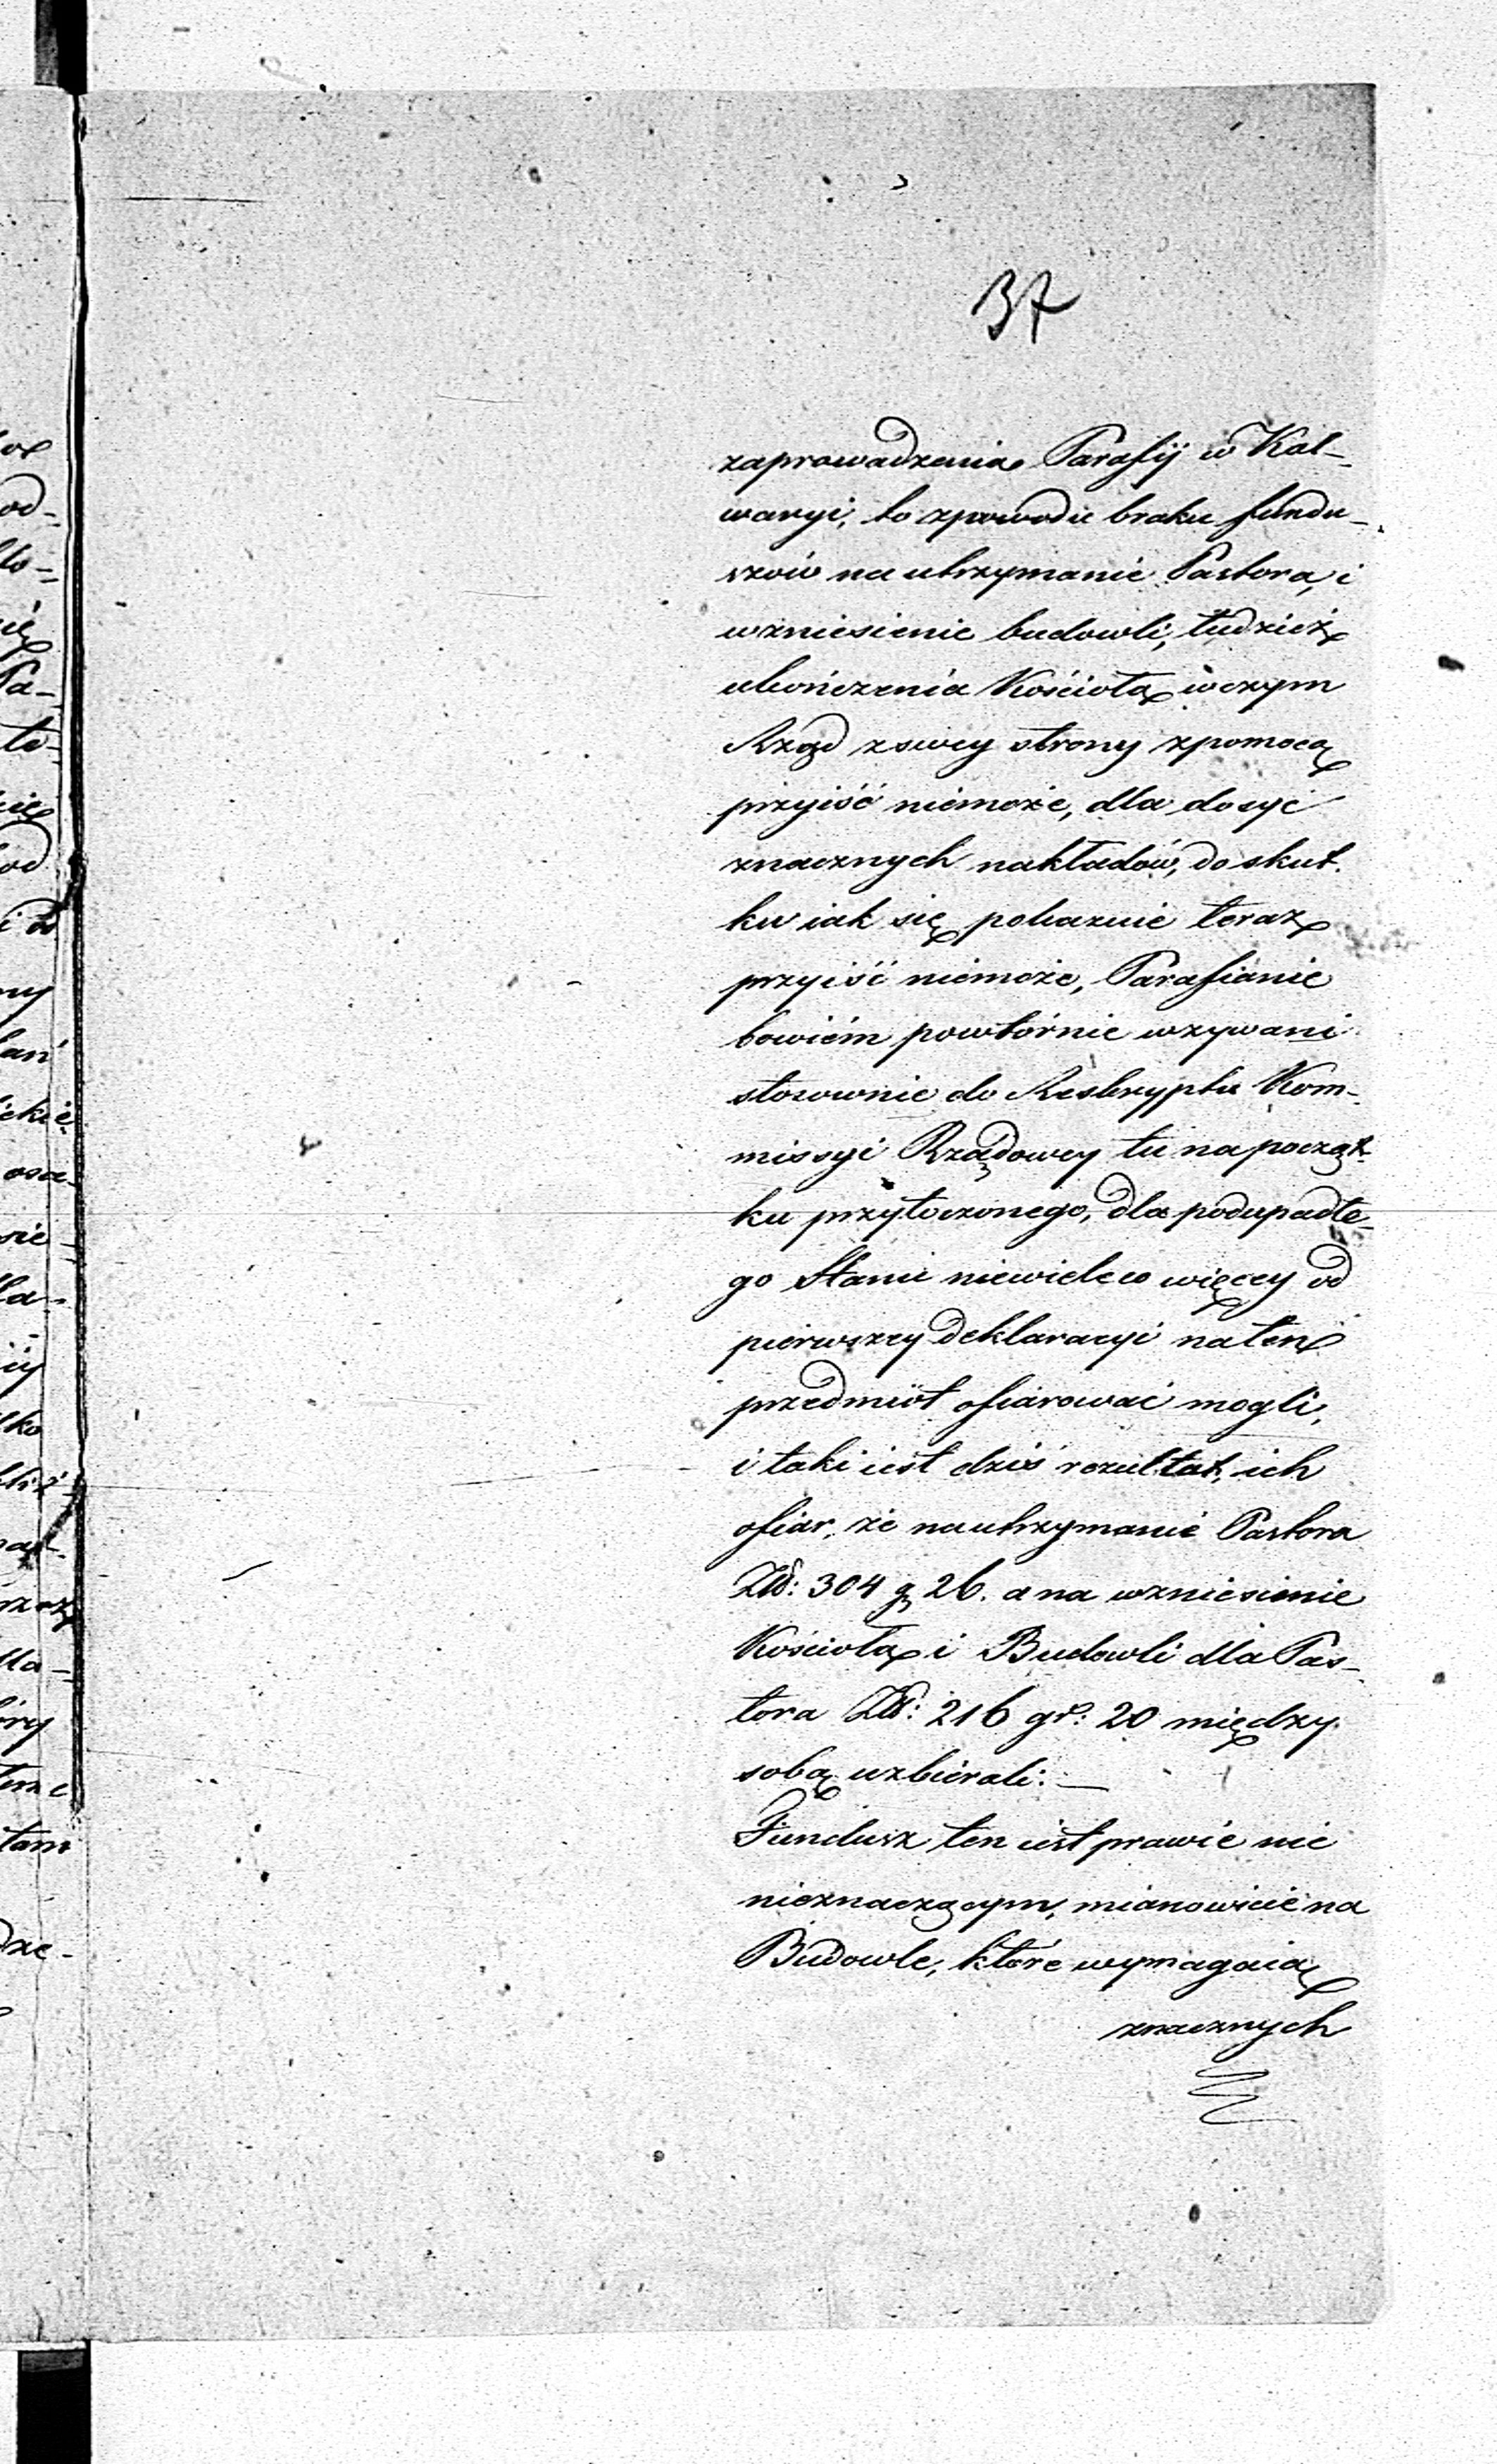 37
zaprowadzenia Parafij w Kal-
waryi, to zpowodu braku fundu-
szów na utrzymanie Pastora, i
wzniesienie budowli, tudzież
ukończenia Kościoła, wczym
Rząd zswey strony zpomocą
przyiść niemoże, dla dosyć
znacznych nakładów, do skut-
ku iak się pokazuie teraz
przyiść niemoże, Parafianie
bowiém powtórnie wzywani
stosownie do Reskryptu Kom-
missyi Rządowey tu na począt-
ku przytoczonego, dla podupadłe-
go Stanu niewieleco więcey od
pierwszey deklaracyi na ten
przedmiot ofiarować mogli,
i taki iest dziś rezultat, ich
ofiar, że na utrzymanie Pastora
Złł: 304 g 26. a na wzniesienie
Kościoła i Budowli dla Pas-
tora Złł: 216 gr: 20 między
sobą uzbierali. —
Fundusz ten iest prawie nic
nieznaczącym, mianowicie na
Budowle, które wymagaią
znacznych